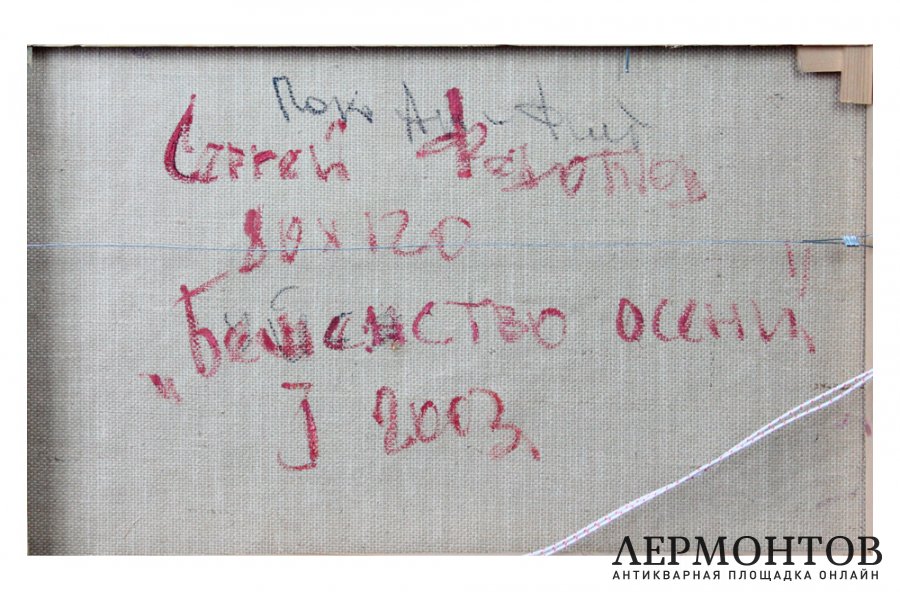 Сергей Федотов
80 х 120
„Бешенство осени"
I 2003
ЛЕРМОНТОВ
АНТИКВАРНАЯ ПЛОЩАДКА ОНЛАЙН